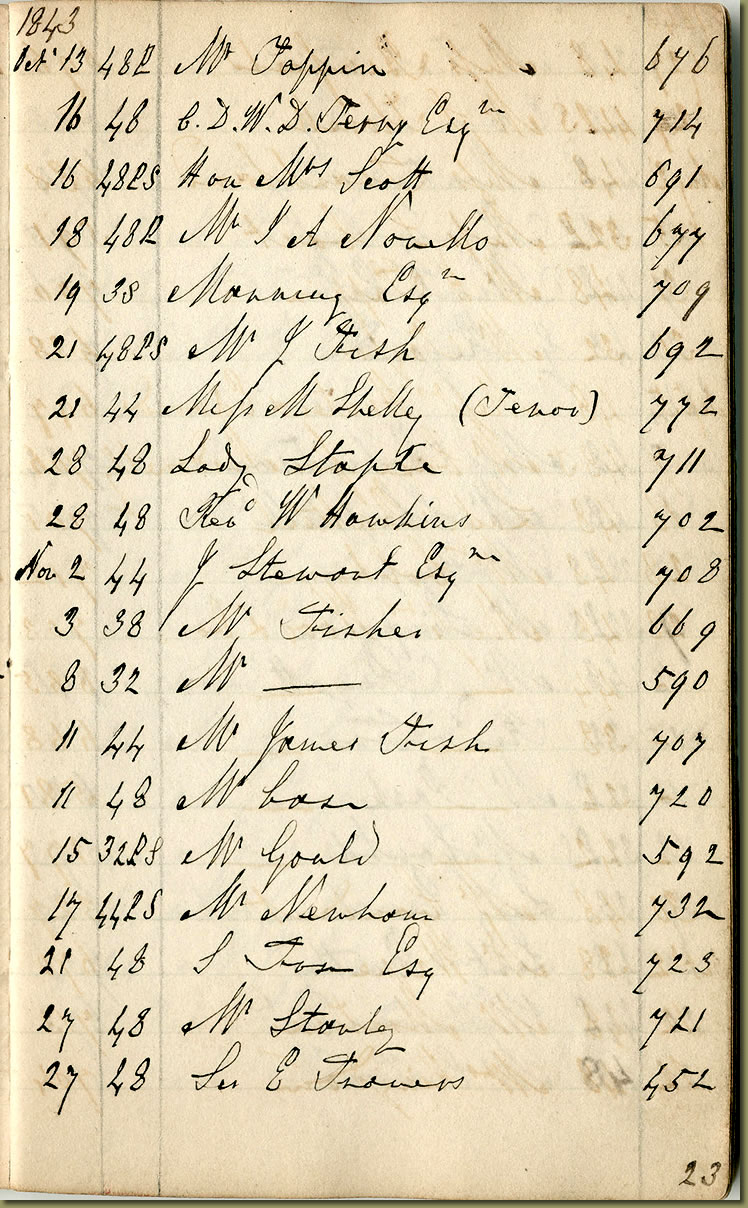 1843
Oct 13 48P Mr Toppin 676
16 48 C. D. W. D. Terry Esqre 714
16 48PS Hon Mrs Scott 691
18 48P Mr J A Novello 677
19 38 Manning Esqre 709
21 48PS Mr J Fish 692
21 44 Miss M Shelley (Tenor) 772
28 48 Lady 711
28 48 Revd W Hawkins 702
Nov 2 44 J Stewart Esqre 708
3 38 Mr Fisher 669
8 32 Mr —— 590
11 44 Mr James Fish 707
11 48 Mr Case 720
15 32PS Mr Gould 592
17 44PS Mr Newham 732
21 48 S Esq 723
27 48 Mr Stanley 721
27 48 Ser E Travers 452
23